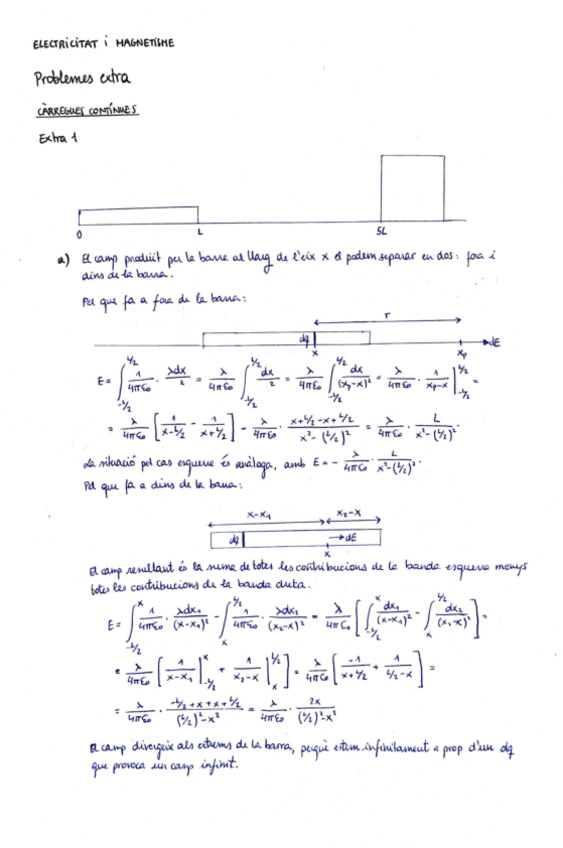 ELECTRICITAT i MAGNETISME
Problemes extra
CÀRREGUES CONTÍNUES
Extra 1
0 L 5L
a) El camp produït per la barra al llarg de l'eix x el podem separar en dos: fora i
dins de la barra.
Pel que fa a fora de la barra:
r
dq dE
x xₚ
E = ∫_{-L/2}^{L/2} 1/4πε₀ · λdx/2 = λ/4πε₀ ∫_{-L/2}^{L/2} dx/2 = λ/4πε₀ ∫_{-L/2}^{L/2} dx/(xₚ-x)² = λ/4πε₀ · 1/xₚ-x |_{-L/2}^{L/2} =
= λ/4πε₀ [1/x-L/2 - 1/x+L/2] = λ/4πε₀ · x+L/2-x+L/2/x²-(L/2)² = λ/4πε₀ · L/x²-(L/2)².
La situació pel cas esquerre és anàloga, amb E = - λ/4πε₀ · L/x²-(L/2)².
Pel que fa a dins de la barra:
x-x₁ x₂-x
dq dE
x
El camp resultant és la suma de totes les contribucions de la banda esquerra menys
totes les contribucions de la banda dreta.
E = ∫_{-L/2}^{x} 1/4πε₀ · λdx₁/(x-x₁)² - ∫_{x}^{L/2} 1/4πε₀ · λdx₂/(x₂-x)² = λ/4πε₀ [∫_{-L/2}^{x} dx₁/(x-x₁)² - ∫_{x}^{L/2} dx₂/(x₂-x)²] =
= λ/4πε₀ [1/x-x₁ |_{-L/2}^{x} + 1/x₂-x |_{x}^{L/2}] = λ/4πε₀ [-1/x+L/2 + 1/L/2-x] =
= λ/4πε₀ · -L/2+x+x+L/2/(L/2)²-x² = λ/4πε₀ · 2x/(L/2)²-x²
El camp divergeix als extrems de la barra, perquè estem infinitament a prop d'un dq
que provoca un camp infinit.